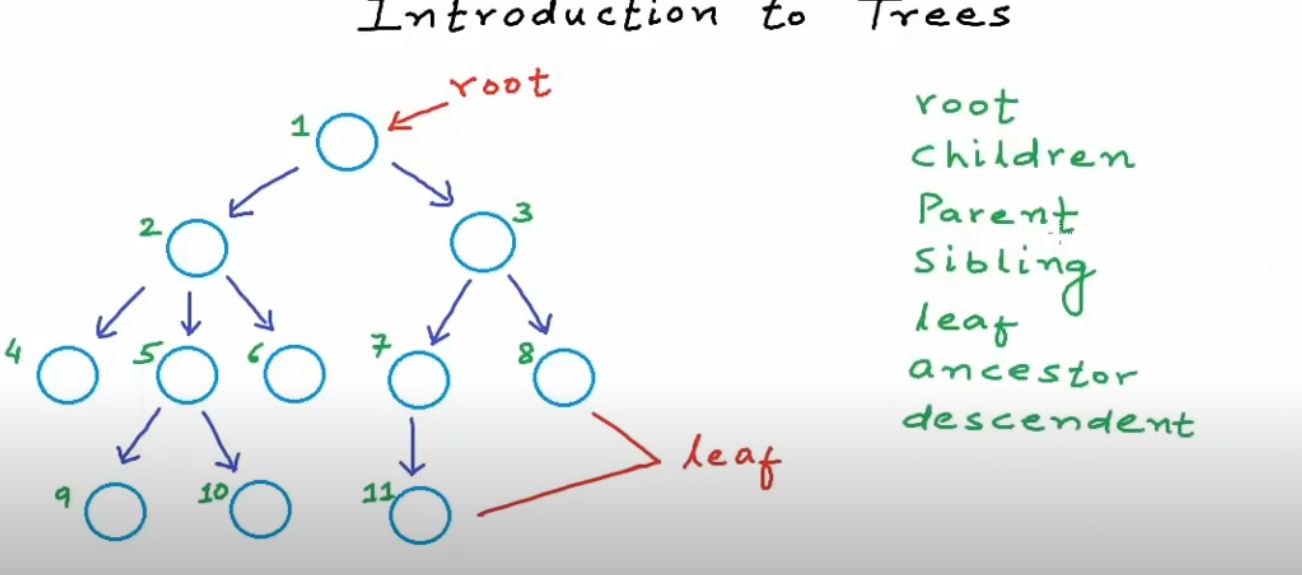 Introduction to Trees
root
1
2
3
4
5
6
7
8
9
10
11
leaf
root
children
Parent
sibling
leaf
ancestor
descendent